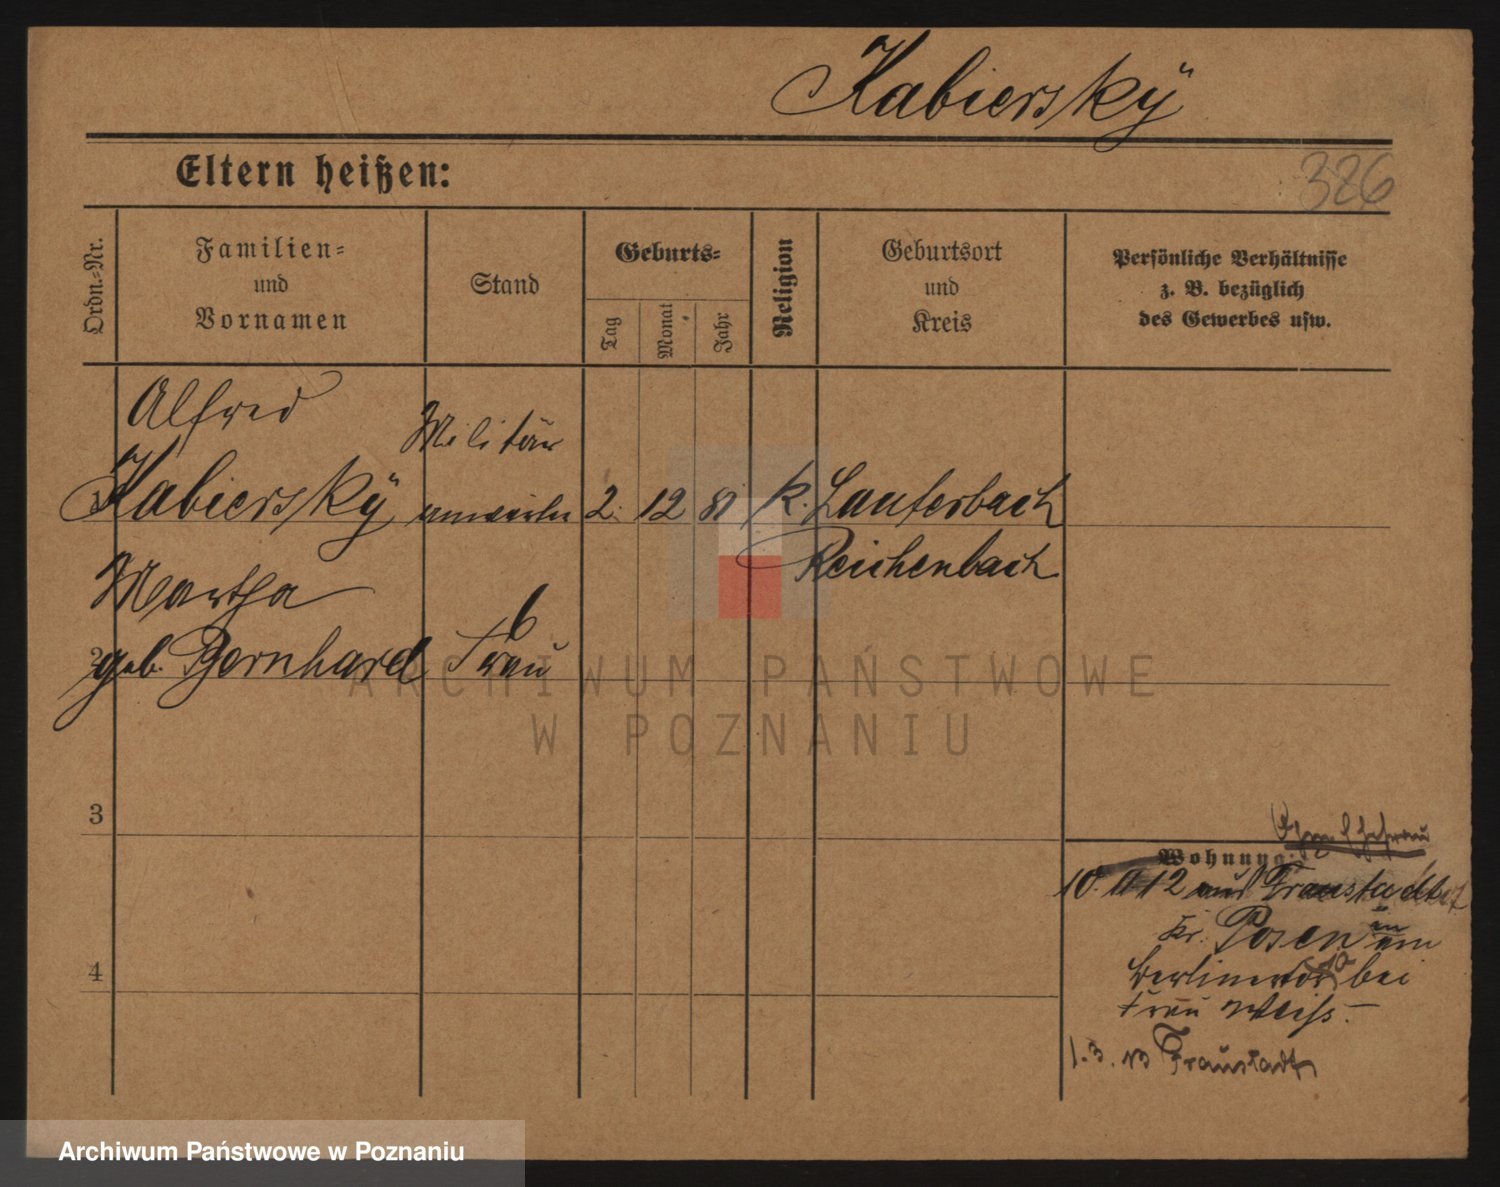 Kabierskÿ
Eltern heißen:
386
Ordn.-Nr.
Familien-
und
Vornamen
Stand
Geburts-
Tag
Monat
Jahr
Religion
Geburtsort
und
Kreis
Persönliche Verhältnisse
z. B. bezüglich
des Gewerbes usw.
Alfred
Militär
1 Kabierskÿ anwärter 2. 12 81 k. Lauterbach
Reichenbach
Martha
2 geb. Bernhard Frau
3
Ehefrau
Wohnung:
10. 11 12 aus Fraustadt
Kr. Posen in
Berlinertor 10 bei
Frau Weiss.
4
1. 3. 13 Fraustadt
ARCHIWUM PAŃSTWOWE
W POZNANIU
Archiwum Państwowe w Poznaniu